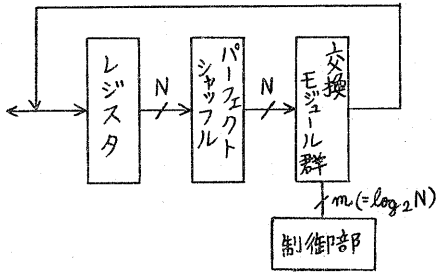 レジスタ
N
パーフェクト
シャッフル
N
交換
モジュール群
m(=log₂N)
制御部